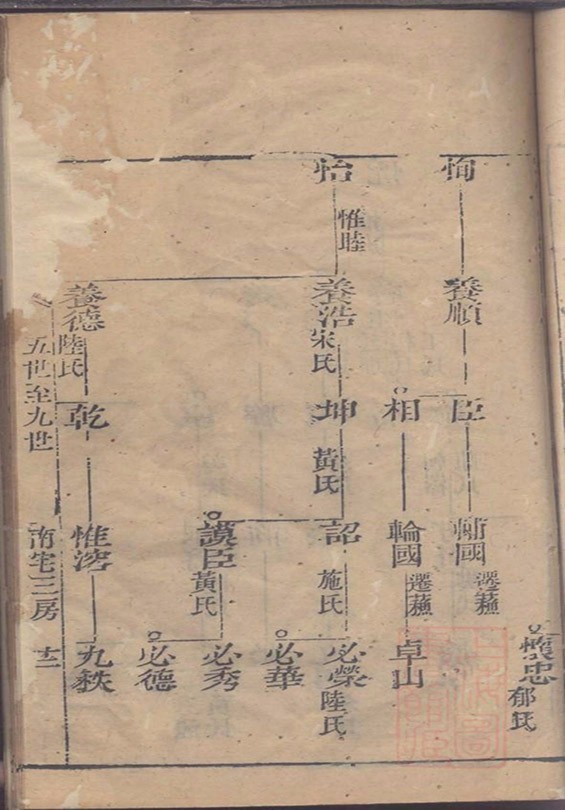 恂
怡
惟睦
養順
養浩
宋氏
養德
陸氏
臣
相
坤
黃氏
乾
國
遷蘇
輪國
遷蘇
認
施氏
謨臣
黃氏
惟
懷忠
郁氏
卓山
必榮
陸氏
必華
必秀
必德
九秩
五世至九世
南宅三房
十二